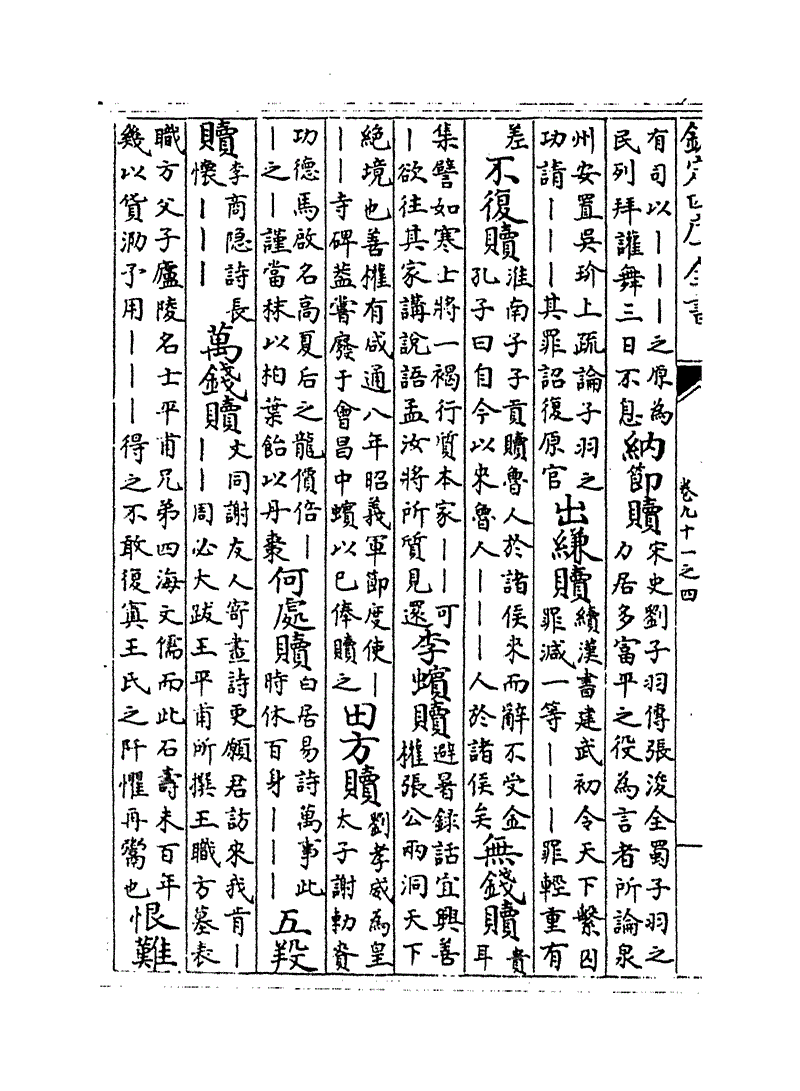 欽定四庫全書
卷九十一之四
有司以———之原為民列拜讙舞三日不息納節贖宋史劉子羽傳張浚全蜀子羽之力居多富平之役為言者所論泉
州安置吳玠上疏論子羽之功請———其罪詔復原官出縑贖續漢書建武初令天下繫囚罪減一等———罪輕重有
差不復贖淮南子子貢贖魯人於諸侯來而辭不受金孔子曰自今以來魯人———人於諸侯矣無錢贖貴耳
集譬如寒上將一褐行質本家——可—欲往其家講說語孟汝將所質見還李蠙贖避暑録話宜興善權張公兩洞天下
絶境也善權有咸通八年昭義軍節度使———寺碑葢嘗廢于會昌中蠙以已俸贖之田方贖劉孝威為皇太子謝勅賚
功德馬啟名高夏后之龍價倍——之—謹當秣以柏葉飴以丹棗何處贖白居易詩萬事此時休百身———五羖
贖李商隐詩長懷———萬錢贖文同謝友人寄畫詩更願君訪來我肯———周必大跋王平甫所撰王職方墓表
職方父子廬陵名士平甫兄弟四海文儒而此石壽未百年幾以貨泐予用———得之不敢復寘王氏之阡懼再鬻也恨難